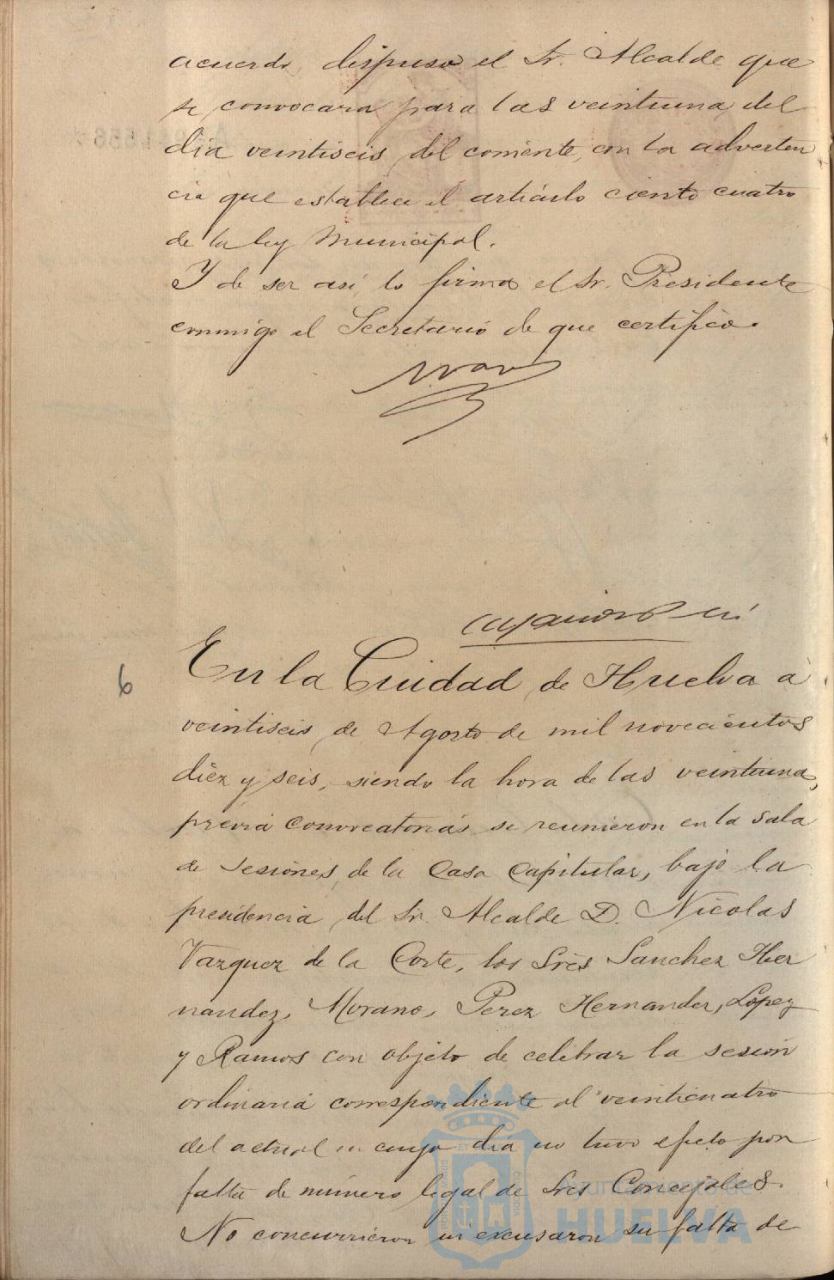 acuerdo, dispuso el Sr. Alcalde que
se convocara para las veintiuna del
dia veintiseis del corriente, con la adverten
cia que establece el articulo ciento cuatro
de la ley Municipal.
Y de ser asi lo firma el Sr. Presidente
conmigo el Secretario de que certifico.
6
En la Ciudad de Huelva a
veintiseis de Agosto de mil novecientos
diez y seis, siendo la hora de las veintiuna,
previa convocatorias se reunieron en la sala
de sesiones de la Casa Capitular, bajo la
presidencia del Sr. Alcalde D. Nicolas
Vazquez de la Corte, los Sres Sanchez Her
nandez, Morano, Perez Hernandez, Lopez
y Ramos con objeto de celebrar la sesion
ordinaria correspondiente al veinticuatro
del actual en cuyo dia no tuvo efecto por
falta de número legal de Sres Concejales.
No concurrieron ni excusaron su falta de
Ayuntamiento de
HUELVA